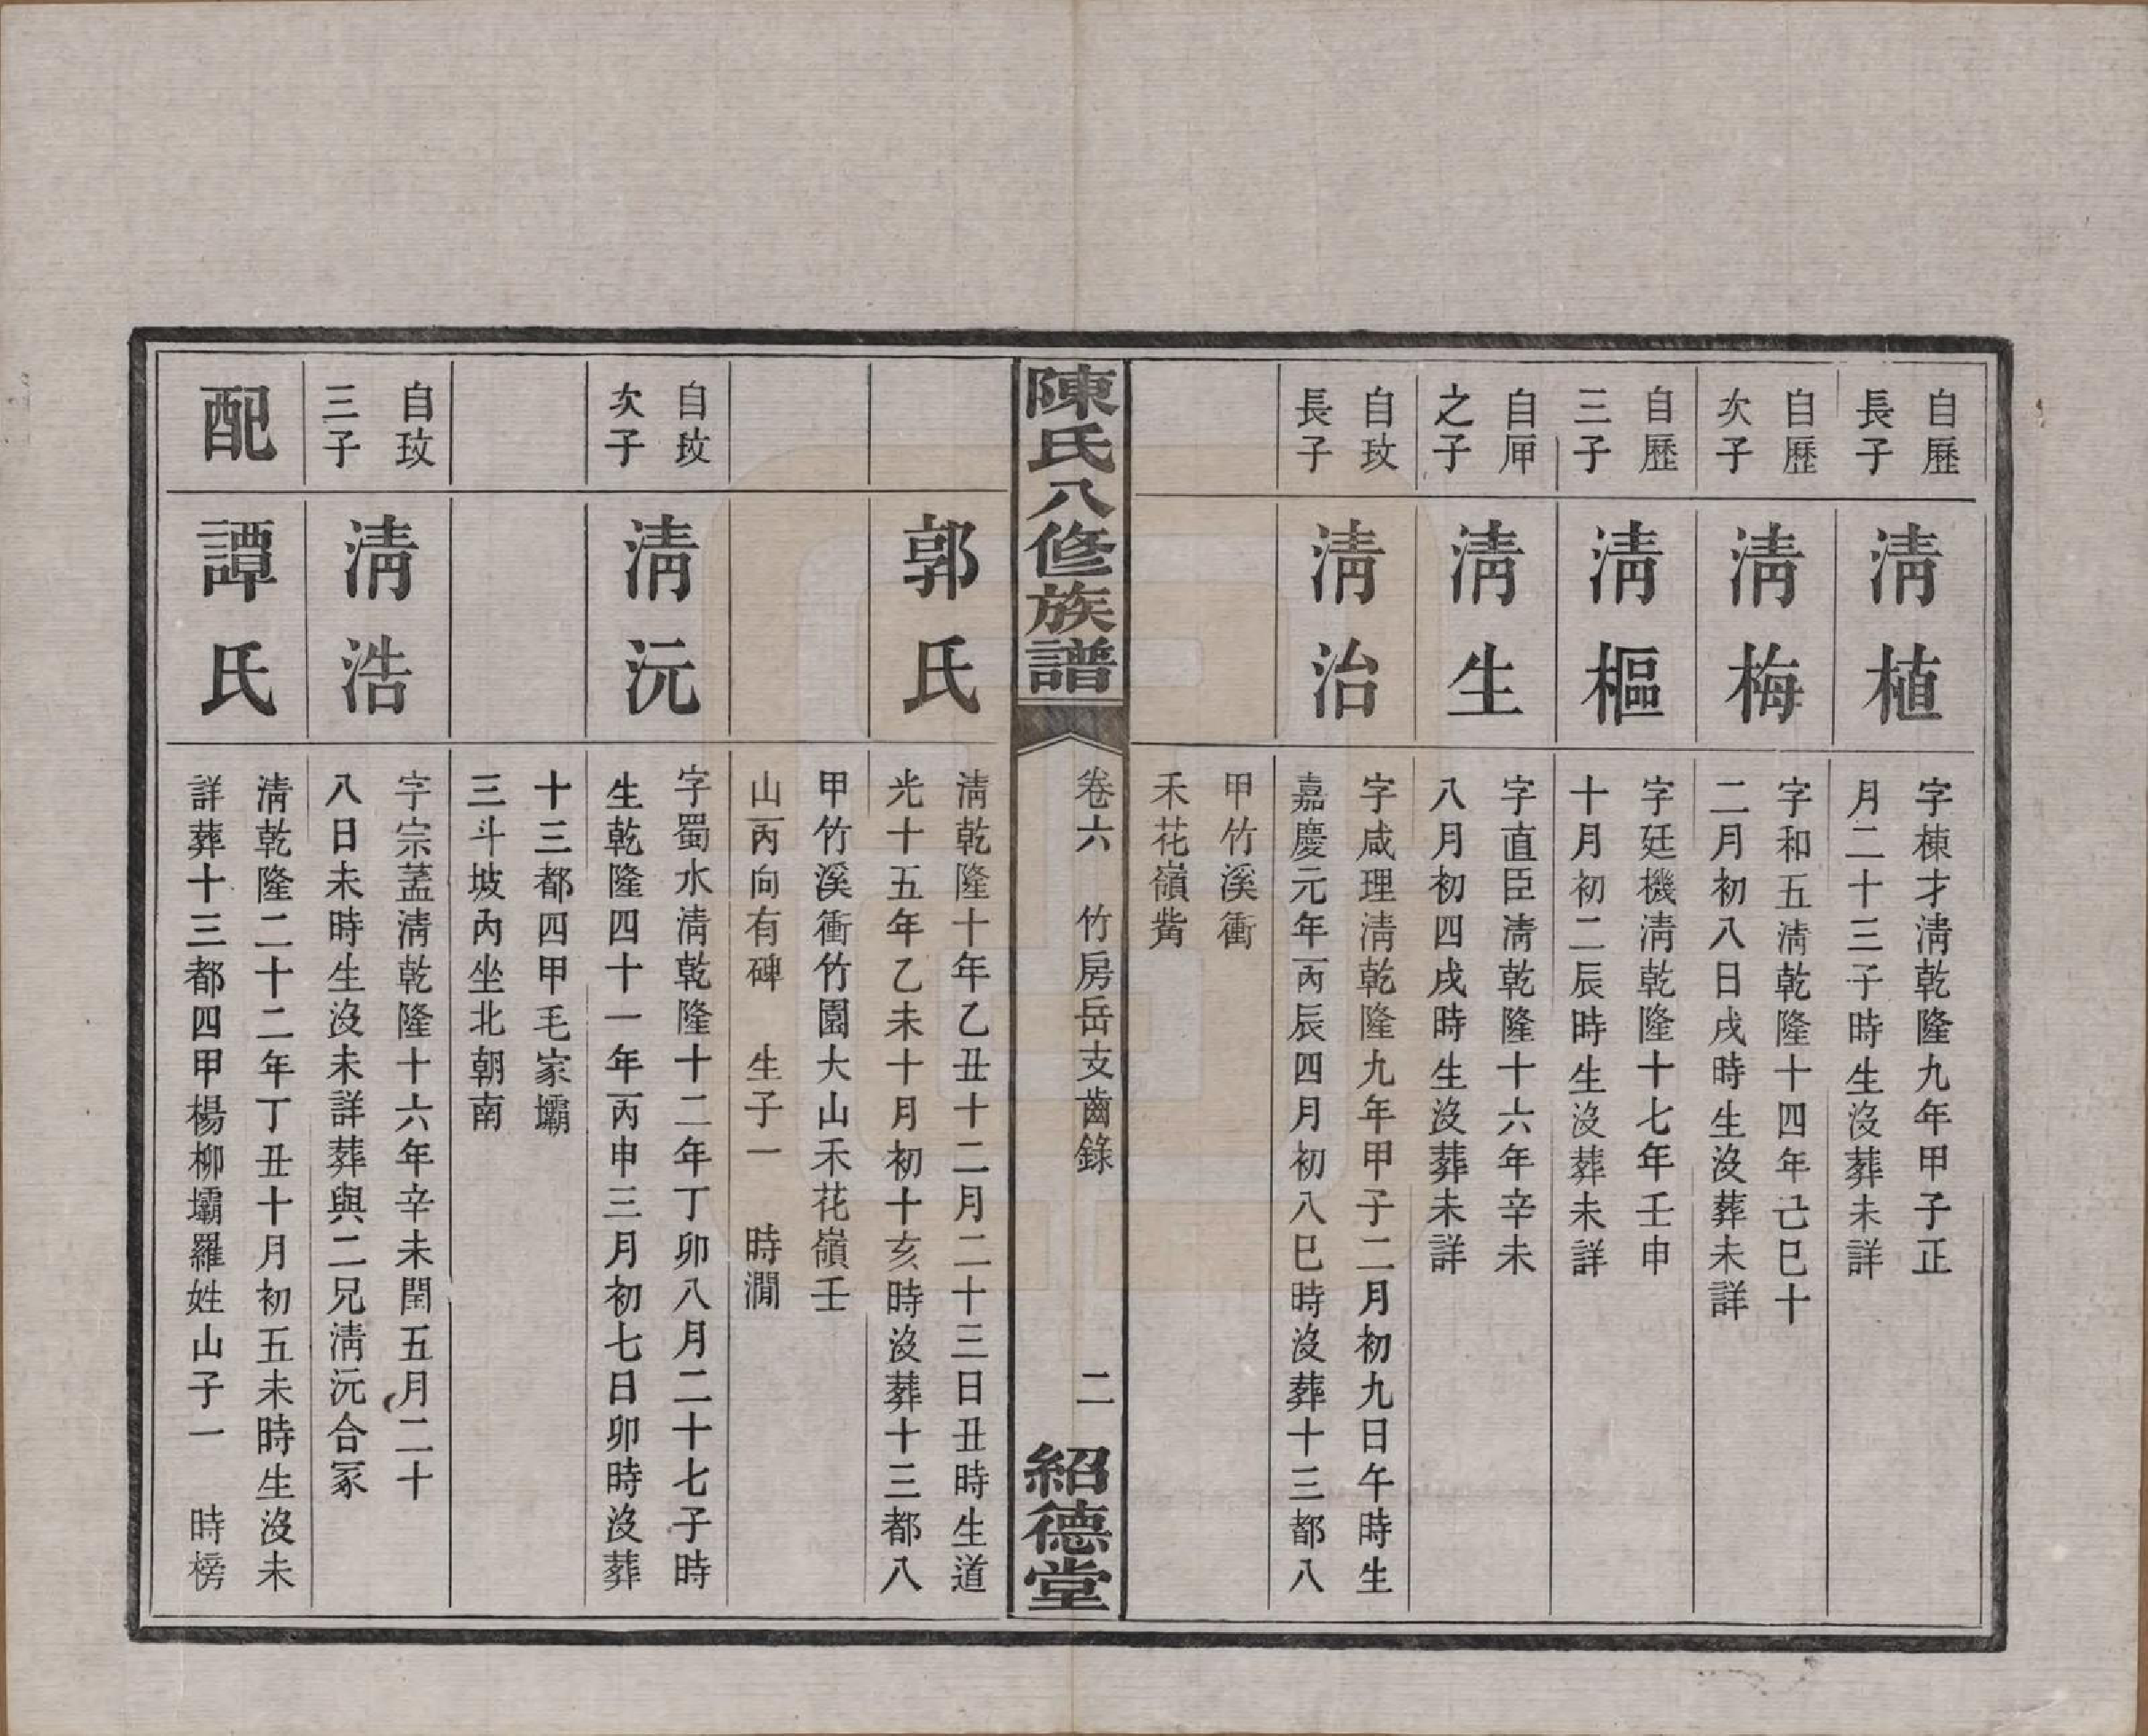 自歷
長子
清植
字棟才清乾隆九年甲子正
月二十三子時生沒葬未詳
自歷
次子
清梅
字和五清乾隆十四年己巳十
二月初八日戌時生沒葬未詳
自歷
三子
清樞
字廷機清乾隆十七年壬申
十月初二辰時生沒葬未詳
自厙
之子
清生
字直臣清乾隆十六年辛未
八月初四戌時生沒葬未詳
自玫
長子
清治
字咸理清乾隆九年甲子二月初九日午時生
嘉慶元年丙辰四月初八巳時沒葬十三都八
甲竹溪衝
禾花嶺觜
陳氏八修族譜
卷六 竹房岳支齒錄
二
紹德堂
郭氏
清乾隆十年乙丑十二月二十三日丑時生道
光十五年乙未十月初十亥時沒葬十三都八
甲竹溪衝竹園大山禾花嶺壬
山丙向有碑 生子一 時澗
自玫
次子
清沅
字蜀水清乾隆十二年丁卯八月二十七子時
生乾隆四十一年丙申三月初七日卯時沒葬
十三都四甲毛家壩
三斗坡內坐北朝南
自玫
三子
清浩
字宗蓋清乾隆十六年辛未閏五月二十
八日未時生沒未詳葬與二兄清沅合冢
配
譚氏
清乾隆二十二年丁丑十月初五未時生沒未
詳葬十三都四甲楊柳壩羅姓山子一 時榜